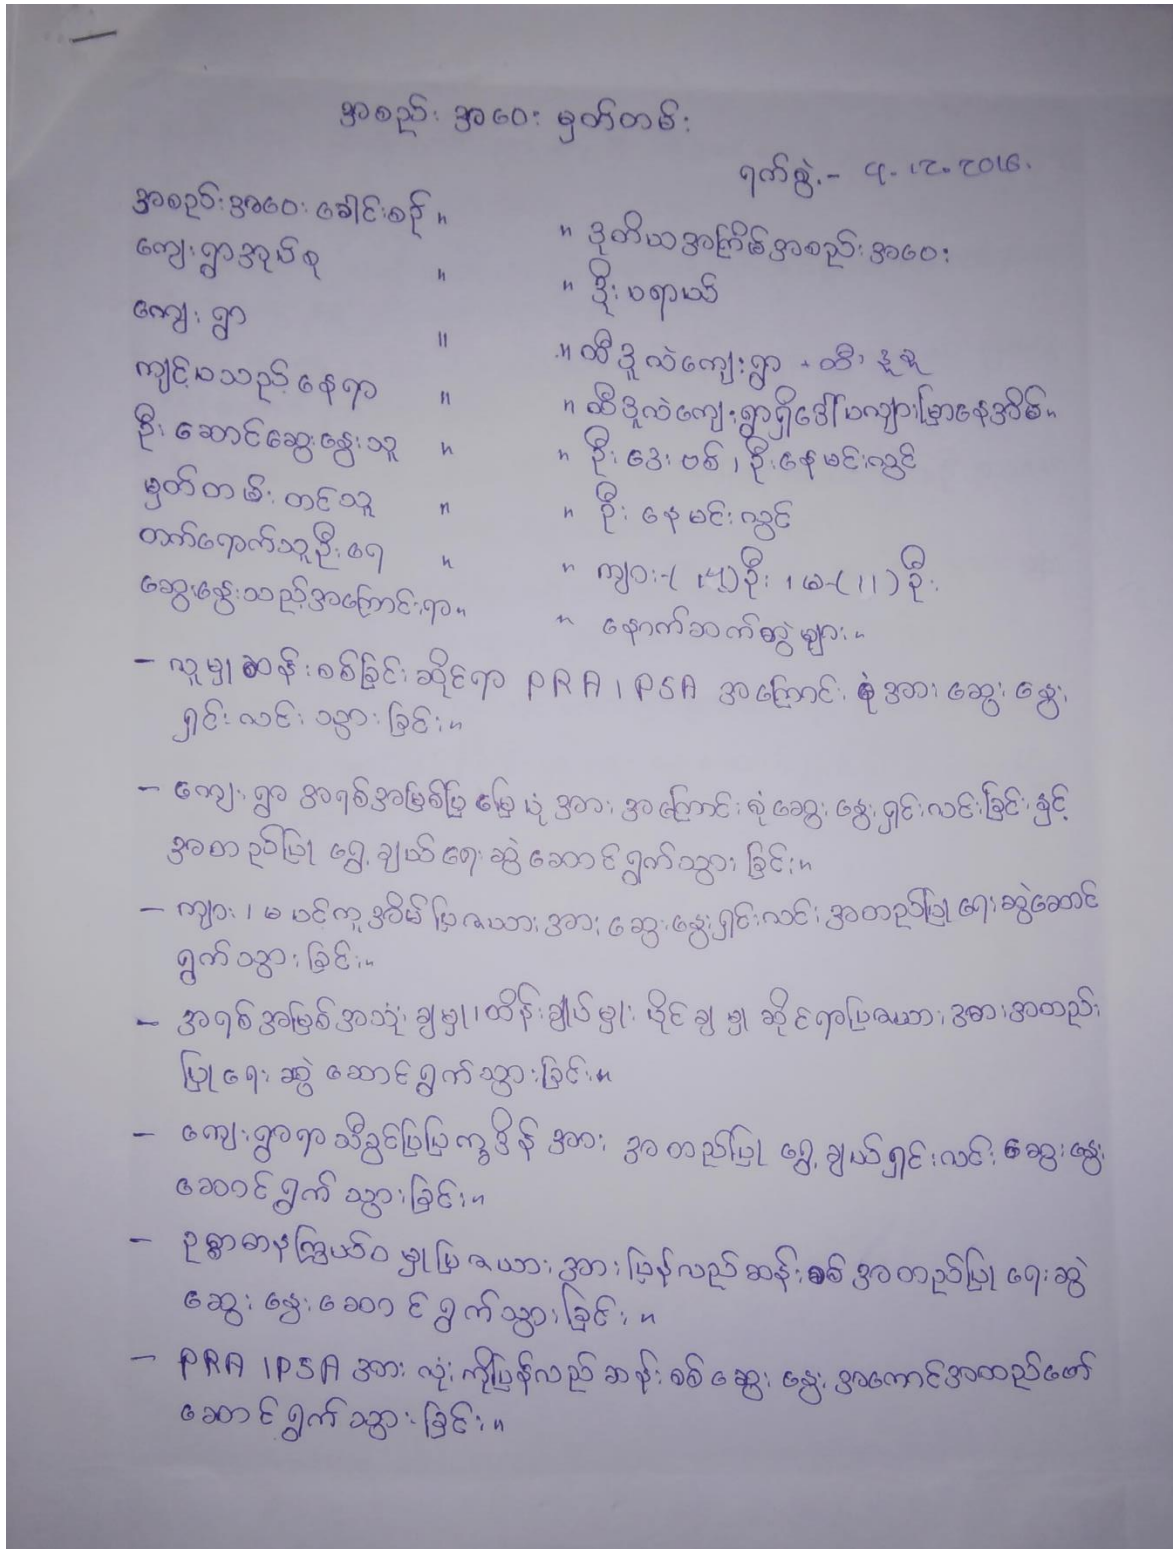 အစည်း အဝေး မှတ်တမ်း
ရက်စွဲ.- ၄.၁၂.၂၀၁၆.
အစည်းအဝေး ခေါင်းစဉ် " " ဒုတိယအကြိမ်အစည်းအဝေး
ကျေးရွာအုပ်စု " " ဒိုးပရာယ်
ကျေးရွာ " " ထီဒူလဲကျေးရွာ
ကျင့်ပသည့်နေရာ " " ထီဒူလဲကျေးရွာရှိဒေါ်ပကျားမြာနေအိမ်"
ဦးဆောင်ဆွေးနွေးသူ " " ဦးဒေးဗစ်၊ ဦးနေမင်းလွင်
မှတ်တမ်းတင်သူ " " ဦးနေမင်းလွင်
တက်ရောက်သူဦးရေ " " ကျား-( )ဦး ၊ မ-(၁၁)ဦး
ဆွေးနွေးသည့်အကြောင်းရာ" " နောက်ဆက်တွဲများ"
- လူမှုဆန်းစစ်ခြင်းဆိုင်ရာ PRA ၊ PSA အကြောင်းစုံအား ဆွေးနွေး
ရှင်းလင်းသွားခြင်း"
- ကျေးရွာ အရစ်အမြစ်ပြမြေပုံအား အကြောင်းစုံဆွေးနွေးရှင်းလင်းခြင်းနှင့်
အတည်ပြု ရွေ့ချယ်ရေးဆွဲဆောင်ရွက်သွားခြင်း"
- ကျား ၊ မ ပင်ကူအိမ်ပြဇယားအား ဆွေးနွေးရှင်းလင်း အတည်ပြုရေးဆွဲဆောင်
ရွက်သွားခြင်း"
- အရစ်အမြစ်အသုံးချမှု၊ထိန်းချုပ်မှု၊ ပိုင်ချမှု ဆိုင်ရာပြဇယားအားအတည်း
ပြုရေးဆွဲဆောင်ရွက်သွားခြင်း"
- ကျေးရွာရာသီခွင်ပြပြက္ခဒိန်အား အတည်ပြု ရွေ့ချယ်ရှင်းလင်းဆွေးနွေး
ဆောင်ရွက်သွားခြင်း"
- ဥစ္စာဓနကြွယ်ဝမှုပြဇယားအား ပြန်လည်ဆန်းစစ်အတည်ပြုရေးဆွဲ
ဆွေးနွေးဆောင်ရွက်သွားခြင်း"
- PRA ၊PSA အားလုံးကိုပြန်လည်ဆန်းစစ်ဆွေးနွေးအကောင်အထည်ဖော်
ဆောင်ရွက်သွားခြင်း"